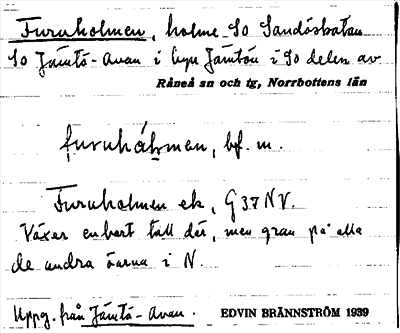 Furuholmen, holme SO Sandöskatan
SO Jämtö-Avan i byn Jämtön i SO delen av
Råneå sn och tg, Norrbottens län
furuhåḷmen, bf. m.
Furuholmen ek, G37NV.
Växer enbart tall där, men gran på alla
de andra öarna i N.
Uppg. från Jämtö-Avan.
EDVIN BRÄNNSTRÖM 1939